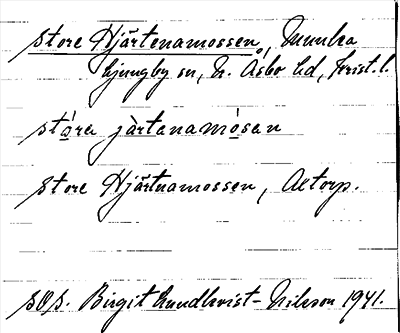 Store Hjärtenamossen, Munka
Ljungby sn, N. Åsbo hd, Krist. l.
stóra jàrtanamósan
Store Hjärtnamossen, Aetorp.
sOs. Birgit Lundkvist-Nilsson 1941.